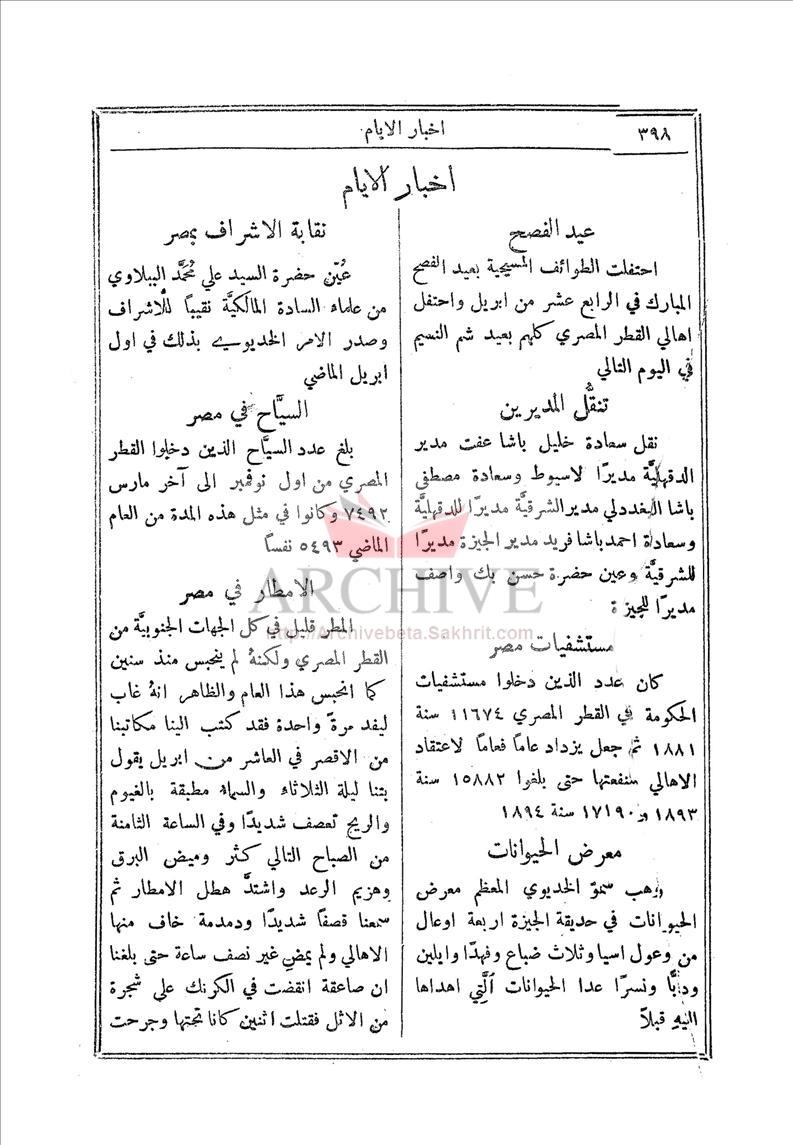 ٣٩٨
اخبار الايام
اخبار الايام
عيد الفصح
احتفلت الطوائف المسيحية بعيد الفصح
المبارك في الرابع عشر من ابريل واحتفل
اهالي القطر المصري كلهم بعيد شم النسيم
في اليوم التالي
تنقُّل المديرين
نقل سعادة خليل باشا عفت مدير
الدقهليَّة مديرًا لاسيوط وسعادة مصطفى
باشا البغددلي مدير الشرقيَّة مديرًا للدقهليَّة
وسعادة احمد باشا فريد مدير الجيزة مديرًا
للشرقيَّة وعين حضرة حسن بك واصف
مديرًا للجيزة
مستشفيات مصر
كان عدد الذين دخلوا مستشفيات
الحكومة في القطر المصري ١١٦٧٤ سنة
١٨٨١ ثم جعل يزداد عامًا فعامًا لاعتقاد
الاهالي منفعتها حتى بلغوا ١٥٨٨٢ سنة
١٨٩٣ و١٧١٩٠ سنة ١٨٩٤
معرض الحيوانات
وهب سموّ الخديوي المعظم معرض
الحيوانات في حديقة الجيزة اربعة اوعال
من وعول اسيا وثلاث ضباع وفهدًا وايلين
ودبًّا ونسرًا عدا الحيوانات الَّتي اهداها
اليهِ قبلاً
نقابة الاشراف بمصر
عُيّن حضرة السيد علي مُحمَّد الببلاوي
من علماء السادة المالكيَّة نقيبًا للأشراف
وصدر الامر الخديوي بذلك في اول
ابريل الماضي
السيَّاح في مصر
بلغ عدد السيَّاح الذين دخلوا القطر
المصري من اول نوفمبر الى آخر مارس
٧٤٩٢ وكانوا في مثل هذه المدة من العام
الماضي ٥٤٩٣ نفسًا
الامطار في مصر
المطر قليل في كل الجهات الجنوبيَّة من
القطر المصري ولكنهُ لم ينحبس منذ سنين
كما انحبس هذا العام والظاهر انهُ غاب
ليفد مرةً واحدة فقد كتب الينا مكاتبنا
من الاقصر في العاشر من ابريل يقول
بتنا ليلة الثلاثاء والسماء مطبقة بالغيوم
والريح تعصف شديدًا وفي الساعة الثامنة
من الصباح التالي كثر وميض البرق
وهزيم الرعد واشتدَّ هطل الامطار ثم
سمعنا قصفًا شديدًا ودمدمة خاف منها
الاهالي ولم يمضِ غير نصف ساعة حتى بلغنا
ان صاعقة انقضت في الكرنك على شجرة
من الاثل فقتلت اثنين كانا تحتها وجرحت
ARCHIVE
http://Archivebeta.Sakhrit.com